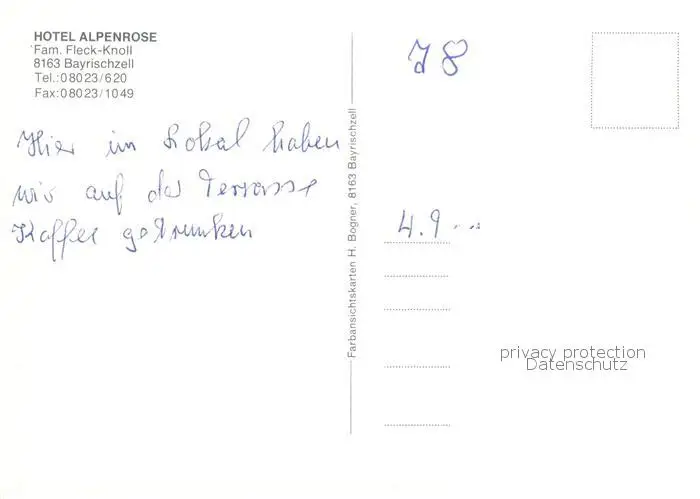 HOTEL ALPENROSE
Fam. Fleck-Knoll
8163 Bayrischzell
Tel.:08023/620
Fax:08023/1049
Hier im Lokal haben
wir auf der Terrasse
Kaffee getrunken
Farbansichtskarten H. Bogner, 8163 Bayrischzell
78
4.9
privacy protection
Datenschutz